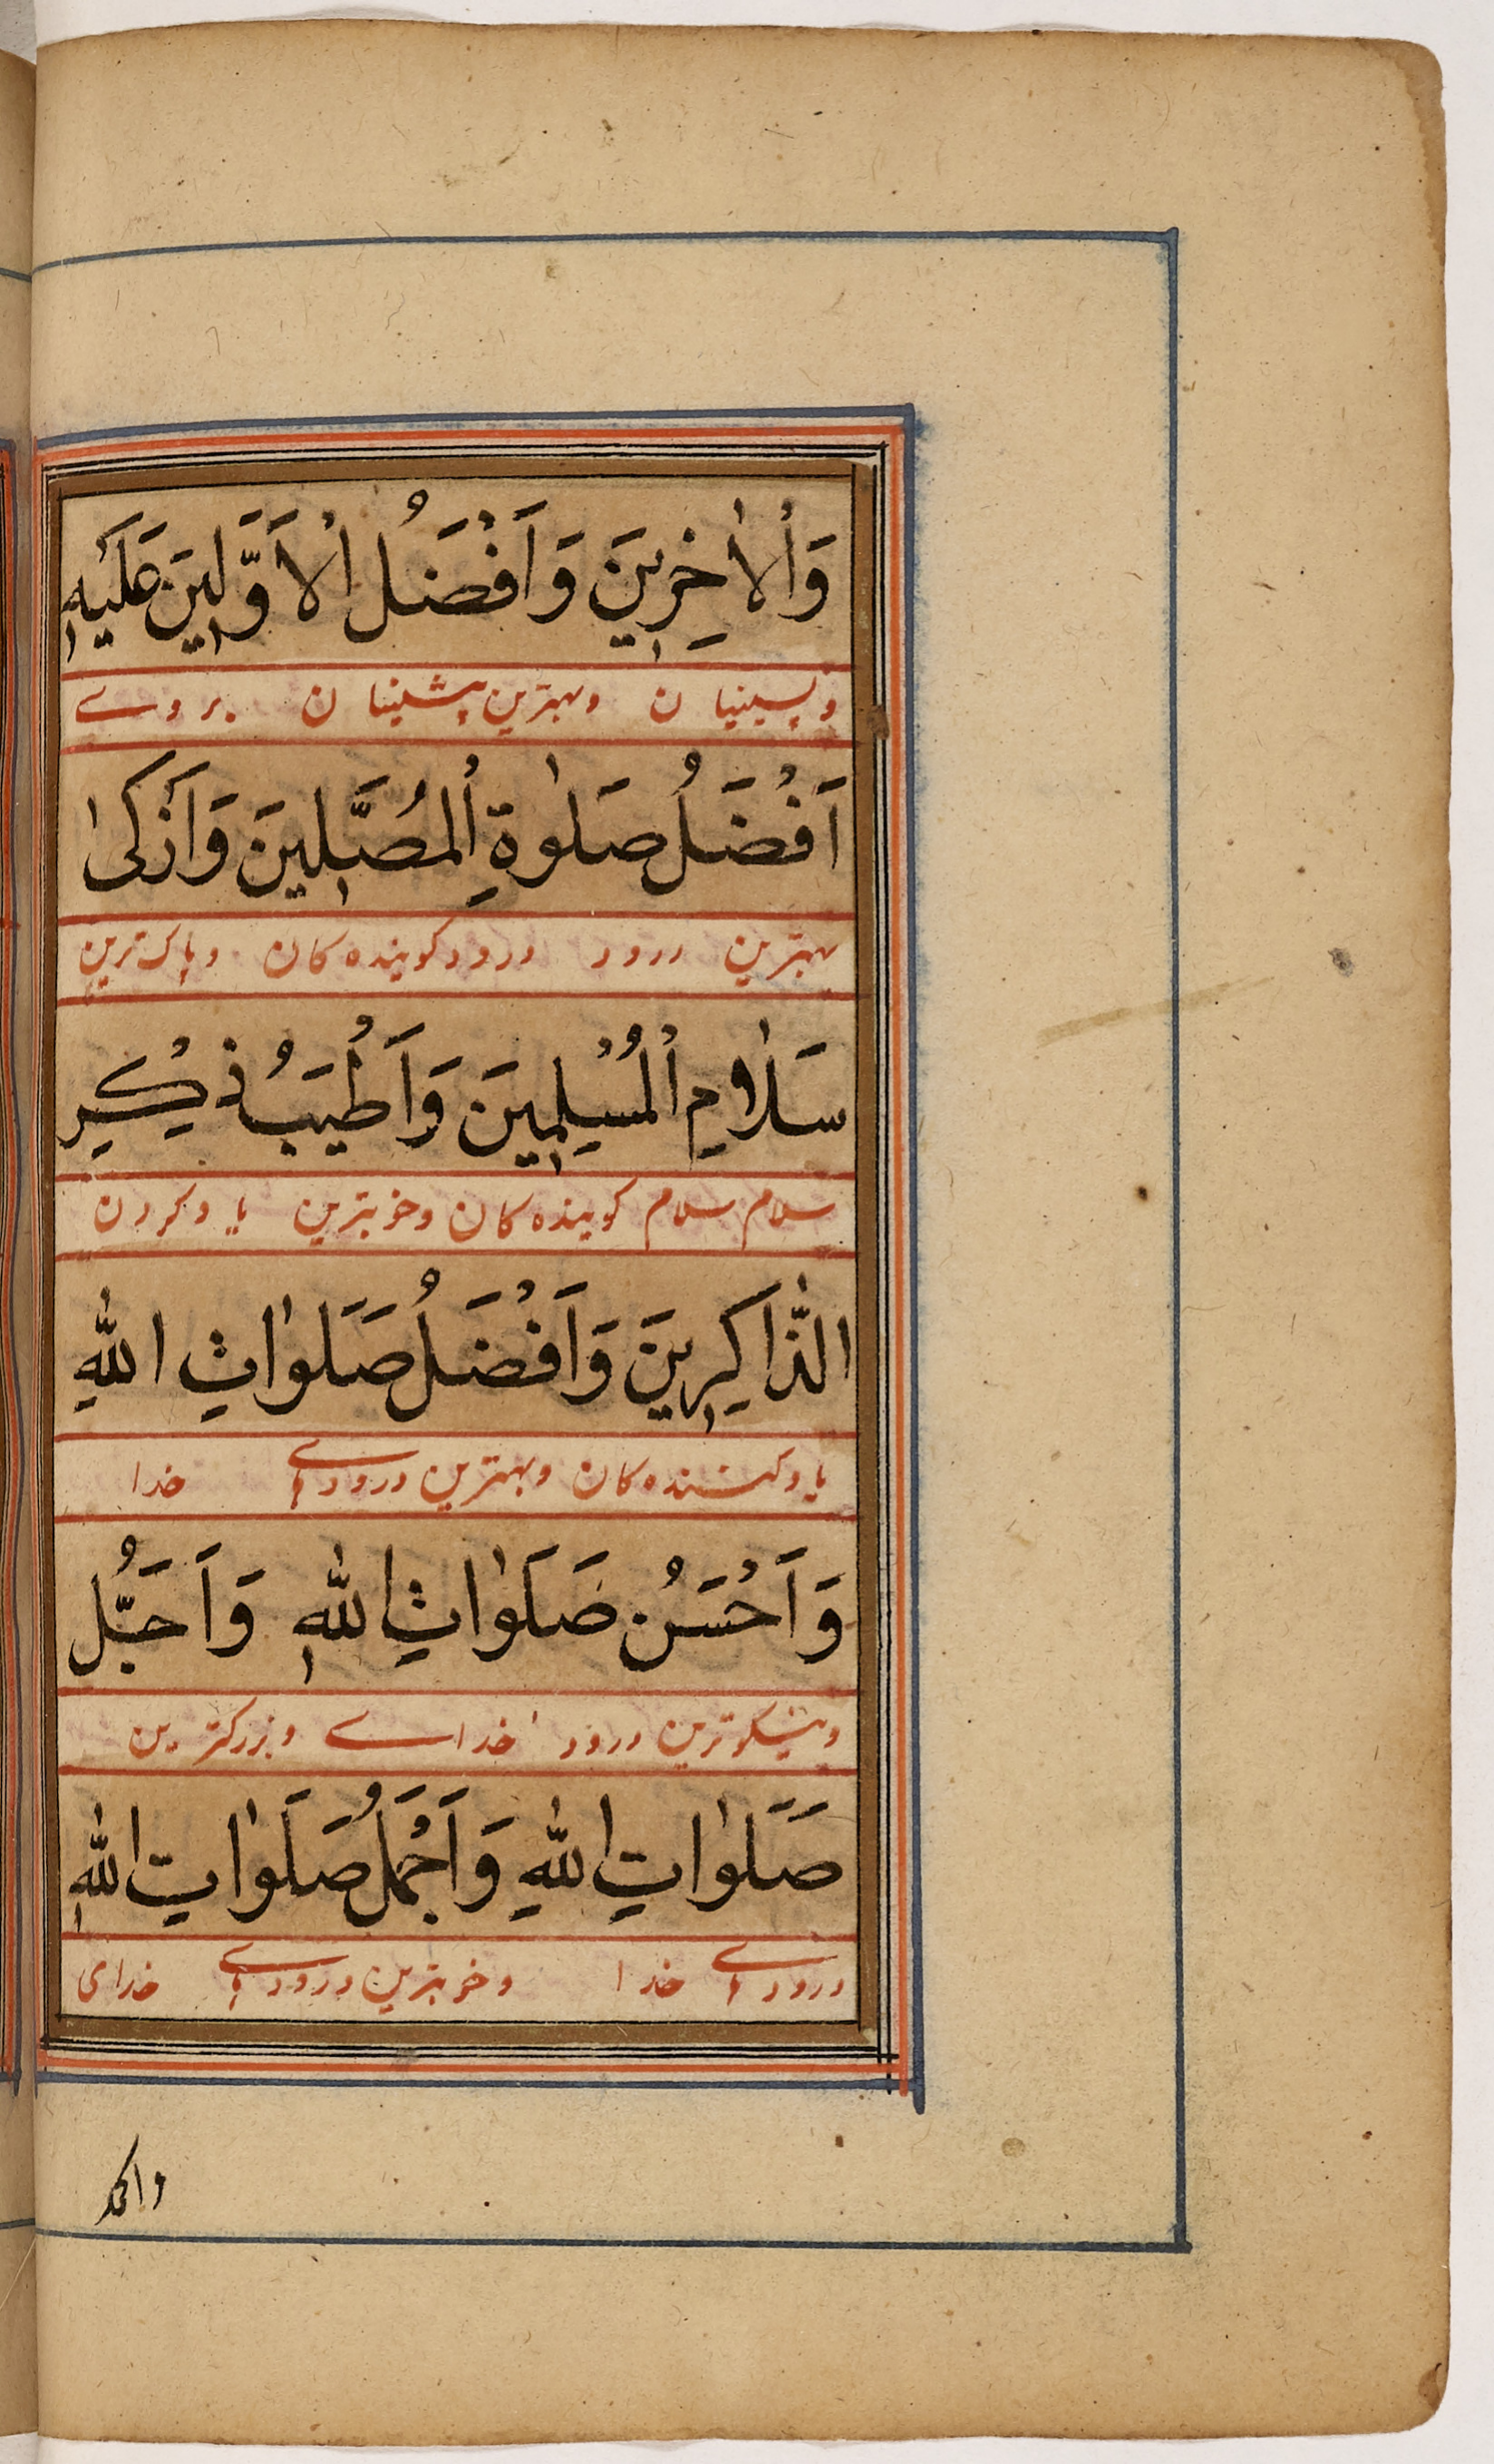 وَاْلاٰخِرِينَ وَاَفْضَلُ اْلاَوَّلِينَ عَلَيهِ
و پسینیان وبهترین پیشینان بروے
اَفْضَلُ صَلٰوةِ اْلمُصَّلِينَ وَاَزكىٰ
بهترین درود درود کوینده کان و پاک ترین
سَلٰامِ اْلمُسْلِمِينَ وَاَطْيَبُ ذِكْرِ
سلام سلام کوینده کان وخوبترین یاد کردن
الذّٰاكِرِينَ وَاَفْضَلُ صَلَوٰاتِ اللّٰهِ
یاد کننده کان وبهترین درودهاے خدا
وَاَحْسَنُ صَلَوٰاتِ اللّٰهِ وَاَجَلُّ
و نیکوترین درود خداے و بزرکترین
صَلَوٰاتِ اللّٰهِ وَاَجْمَلُ صَلَوٰاتِ اللّٰهِ
درودهاے خدا وخوبترین درودهاے خدای